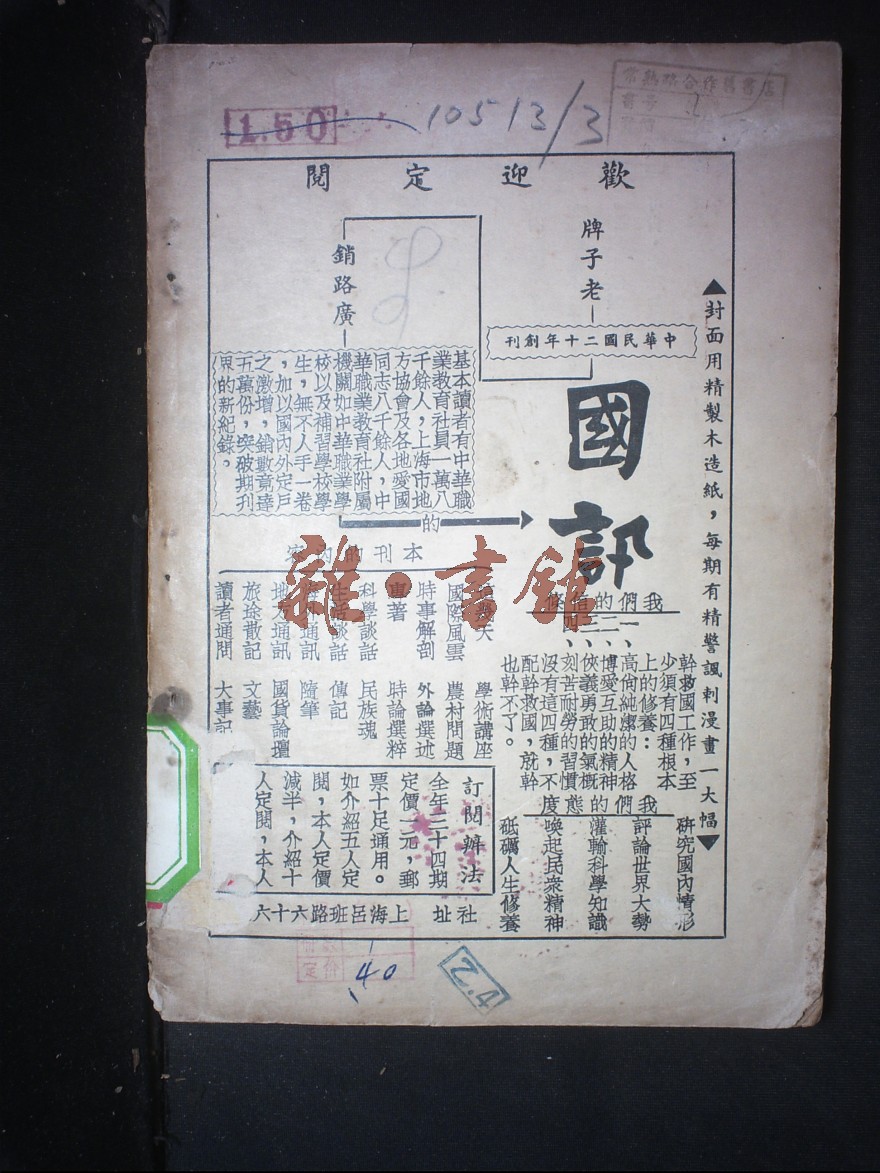 1.50
10513/3
常熟路合作舊書店
歡迎定閱
▲封面用精製木造紙，每期有精警諷刺漫畫一大幅▼
牌子老
中華民國二十年創刊
銷路廣
基本讀者有中華職
業教育社社員一萬八
千餘人，上海市地
方協會及各地愛國
同志八千餘人，中
華職業教育社附屬
機關如中華職業學
校以及補習學校學
生，無不人手一卷
，加以國內外定戶
之激增，銷數竟達
五萬份，突破期刊
界的新紀錄。
的
國訊
我們的信條
幹救國工作，至
少須有四種根本
上的修養：
一、高尙純潔的人格
二、博愛互助的精神
三、俠義勇敢的氣概
四、刻苦耐勞的習慣
沒有這四種，不
配幹救國，就幹
也幹不了。
我們的態度
研究國內情形
評論世界大勢
灌輸科學知識
喚起民衆精神
砥礪人生修養
本刊的內容
國際風雲
時事解剖
專著
科學談話
生活談話
通訊
地方通訊
旅途散記
讀者通問
學術講座
農村問題
外論選述
時論選粹
民族魂
傳記
隨筆
國貨論壇
文藝
大事記
訂閱辦法
全年三十四期
定價一元，郵
票十足通用。
如介紹五人定
閱，本人定價
減半，介紹十
人定閱，本人
社址 上海呂班路六十六
雜·書館
定價
40
2.4